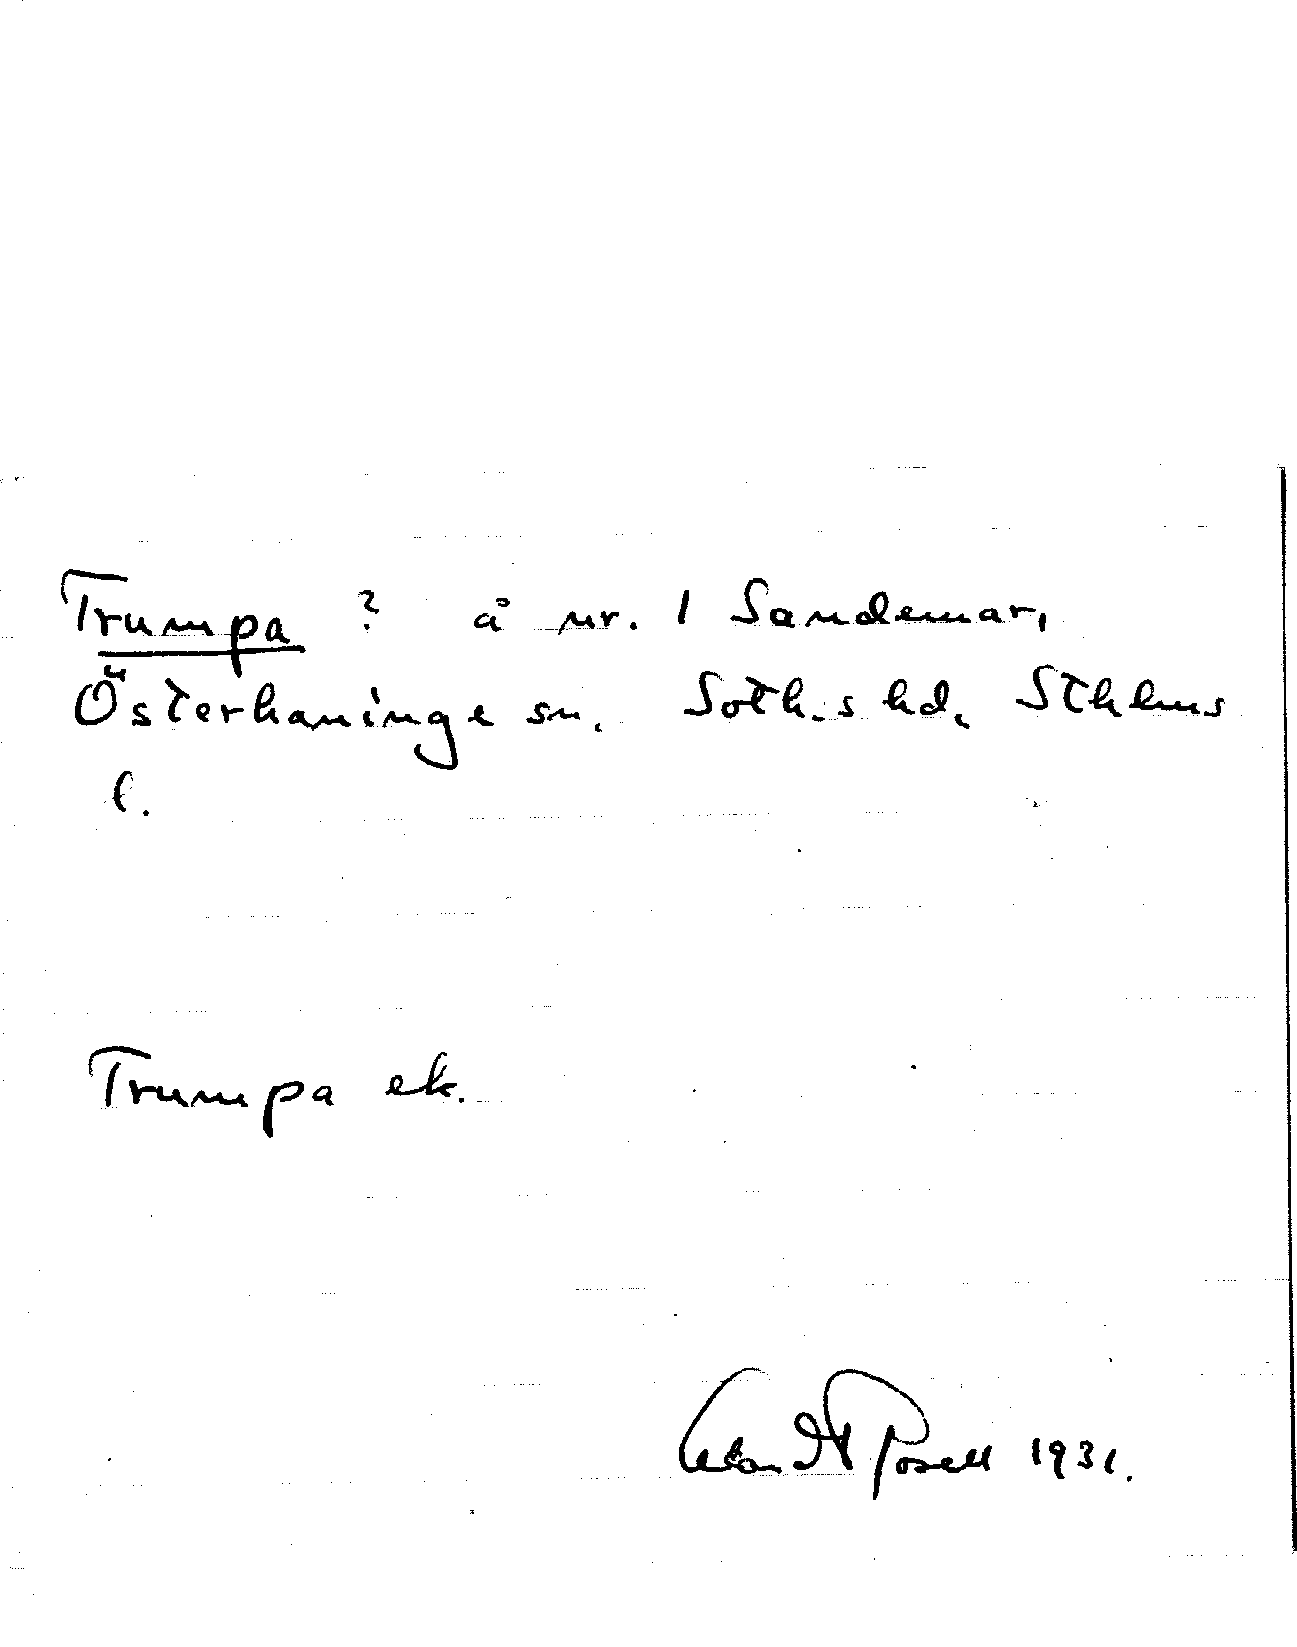 Trumpa ? å nr. 1 Sandemar,
Österhaninge sn. Soth.s hd. Sthlms
l.
Trumpa ek.
Posell 1931.